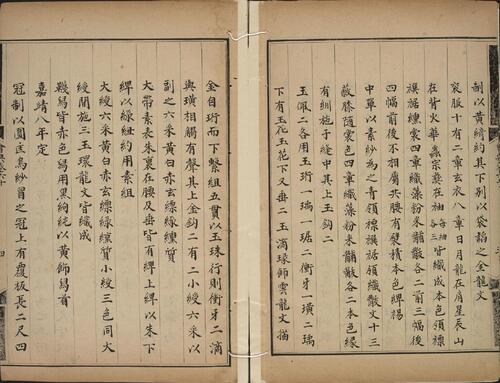 制以黃綺約其下別以袋韜之金龍文
袞服十有二章玄衣八章日月龍在肩星辰山
在背火華蟲宗彝在袖每袖各三皆織成本色領褾
襈裾纁裳四章織藻粉米黼黻各二前三幅後
四幅前後不相屬共腰有襞積本色綼裼
中單以素紗為之青領褾襈裾領織黻文十三
蔽膝隨裳色四章織藻粉米黼黻各二本色緣
有紃施于縫中其上玉鈎二
玉佩二各用玉珩一瑀一琚二衝牙一璜二瑀
下有玉花玉花下又垂二玉滴瑑飾雲龍文描
金自珩而下繫組五貫以玉珠行則衝牙二滴
與璜相觸有聲其上金鈎二有二小綬六采以
副之六采黃白赤玄縹綠纁質
大帶素表朱裏在腰及垂皆有綼上綼以朱下
綼以綠紐約用素組
大綬六采黃白赤玄縹綠纁質小綬三色同大
綬間施三玉環龍文皆織成
襪舄皆赤色舄用黑絇純以黃飾舄首
嘉靖八年定
冠制以圓匡烏紗冒之冠上有覆板長二尺四
四